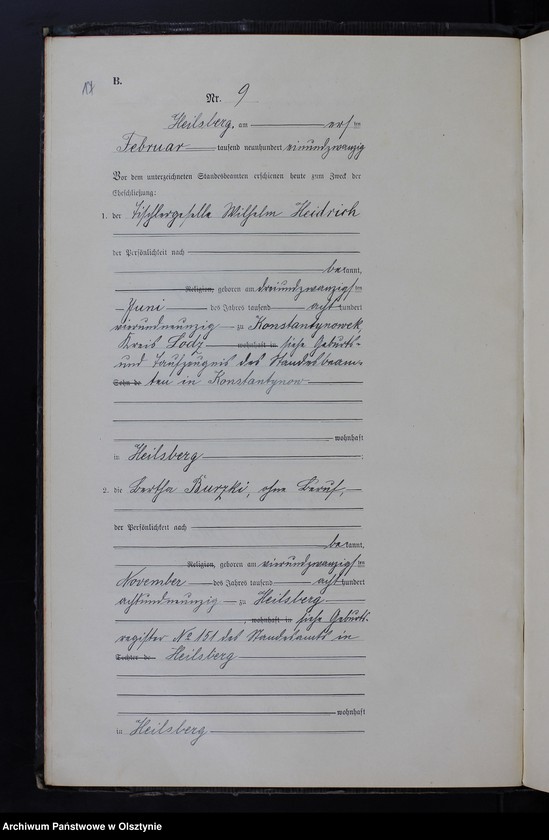 B.
Nr. 9
Heilsberg, am ersten
Februar tausend neunhundert einundzwanzig
Vor dem unterzeichneten Standesbeamten erschienen heute zum Zweck der
Eheschließung:
1. der Tischlergeselle Wilhelm Heidrich
der Persönlichkeit nach
bekannt,
Religion, geboren am dreiundzwanzigsten
Juni des Jahres tausend achthundert
vierundneunzig zu Konstantynowek,
Kreis Lodz wohnhaft in siehe Geburts-
und Taufzeugnis des Standesbeam-
Sohn de ten in Konstantynow
wohnhaft
in Heilsberg
2. die Bertha Burzki, ohne Beruf,
der Persönlichkeit nach
bekannt,
Religion, geboren am vierundzwanzigsten
November des Jahres tausend achthundert
achtundneunzig zu Heilsberg
, wohnhaft in siehe Geburts-
register No 151 des Standesamts in
Tochter de Heilsberg
wohnhaft
in Heilsberg
Archiwum Państwowe w Olsztynie